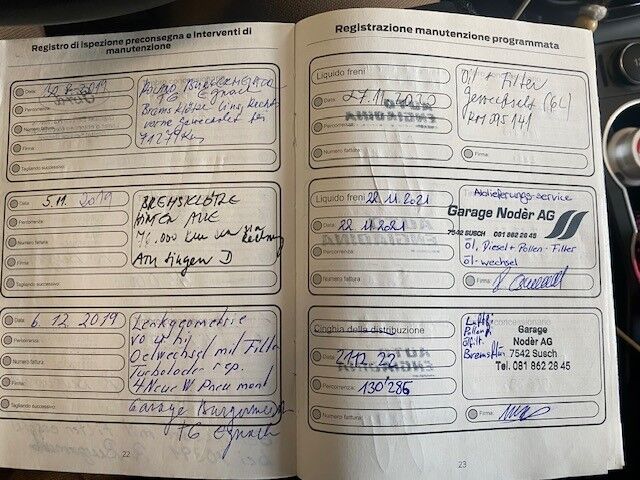 Registro di ispezione preconsegna e interventi di
manutenzione
Data: 30.8.2019
Percorrenza:
Numero fattura:
Firma:
Tagliando successivo:
TG Egnach
Bremsklötze links rechts
vorne gewechselt bei
71279 Km
Data: 5.11. 2019
Percorrenza:
Numero fattura:
Firma:
Tagliando successivo:
BREMSKLÖTZE
HINTEN ALLE
76.000 km
ATU Singen D
Data: 6. 12. 2019
Percorrenza:
Numero fattura:
Firma:
Tagliando successivo:
Lenkgeometrie
vo u hi
Oelwechsel mit Filter
Turbolader rep.
4 Neue W Pneu mont
Garage Burgermeister
TG Egnach
22
Registrazione manutenzione programmata
Liquido freni
Data: 27.11.2020
Percorrenza:
Numero fattura:
Öl + Filter
gewechselt (6L)
km 095141
Firma:
Liquido freni 22.11.2021
Data: 22.11.2021
Percorrenza:
Numero fattura:
Ablieferungs-service
Garage Nodèr AG
7542 SUSCH 081 862 28 45
Öl, Diesel + Pollen-Filter
Öl-wechsel
Firma:
Cinghia della distribuzione
Data: 21.12.22
Percorrenza: 130'286
Numero fattura:
Luftfi.
Pollenfi.
Ölfilt.
Bremsflü
Garage
Nodèr AG
7542 Susch
Tel. 081 862 28 45
Firma:
23